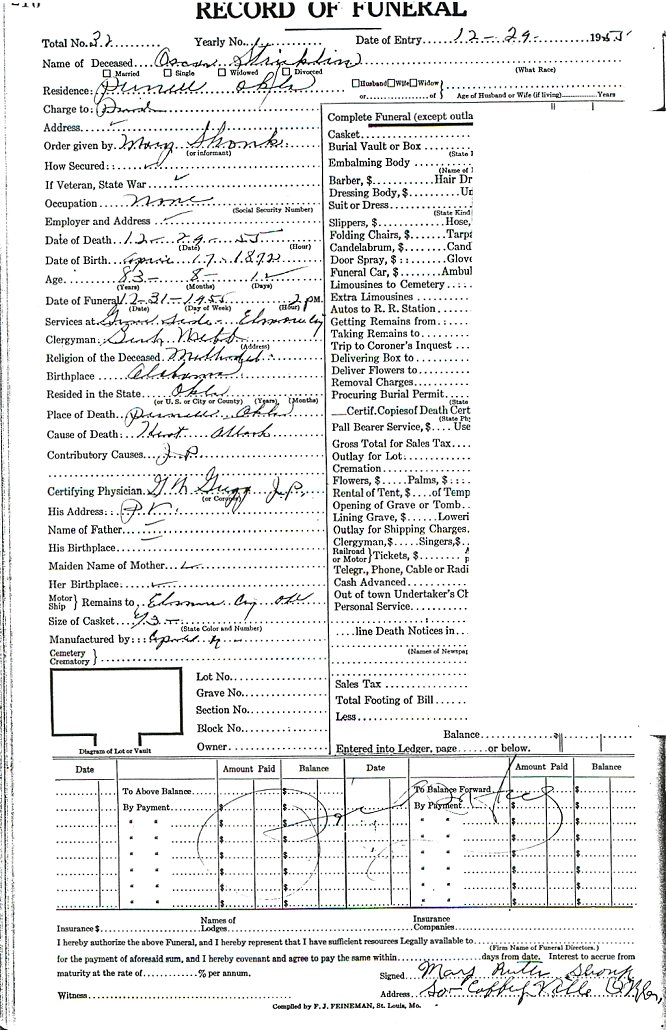 RECORD OF FUNERAL
Total No. 32 Yearly No. Date of Entry 12-29- 1955
Name of Deceased Oscar Stricklin
Married Single Widowed Divorced (What Race)
Residence: Purcell Okla Husband Wife Widow
or of Age of Husband or Wife (if living) Years
Charge to:
Address
Order given by Mary Shonk
(or informant)
How Secured:
If Veteran, State War
Occupation None
(Social Security Number)
Employer and Address
Date of Death 12-29-55
(Date) (Hour)
Date of Birth April 17-1872
Age 83- 8- 12
(Years) (Months) (Days)
Date of Funeral 12-31-1955 2 P.M.
(Date) (Day of Week) (Hour)
Services at Grave Side - Elmore City
Clergyman Webb
(Address)
Religion of the Deceased Methodist
Birthplace Alabama
Resided in the State Okla
(or U. S. or City or County) (Years) (Months)
Place of Death Purcell Okla
Cause of Death: Heart Attack
Contributory Causes J.P.
Certifying Physician J.P.
(or Coroner)
His Address:
Name of Father
His Birthplace
Maiden Name of Mother
Her Birthplace
Motor
Ship } Remains to Elmore City Okl
Size of Casket
(State Color and Number)
Manufactured by:
Cemetery
Crematory }
Lot No.
Grave No.
Section No.
Block No.
Owner
Diagram of Lot or Vault
Complete Funeral (except outla
Casket
Burial Vault or Box
(State
Embalming Body
(Name of
Barber, $ Hair Dr
Dressing Body, $ Un
Suit or Dress
(State Kind
Slippers, $ Hose,
Folding Chairs, $ Tarpa
Candelabrum, $ Cand
Door Spray, $ Glove
Funeral Car, $ Ambul
Limousines to Cemetery
Extra Limousines
Autos to R. R. Station
Getting Remains from:
Taking Remains to
Trip to Coroner's Inquest
Delivering Box to
Deliver Flowers to
Removal Charges
Procuring Burial Permit
(State
Certif. Copies of Death Cert
(State
Pall Bearer Service, $ Use
Gross Total for Sales Tax
Outlay for Lot
Cremation
Flowers, $ Palms, $
Rental of Tent, $ of Temp
Opening of Grave or Tomb
Lining Grave, $ Loweri
Outlay for Shipping Charges
Clergyman, $ Singers, $
Railroad
or Motor } Tickets, $
Telegr., Phone, Cable or Radi
Cash Advanced
Out of town Undertaker's Ch
Personal Service
line Death Notices in
(Names of Newspap
Sales Tax
Total Footing of Bill
Less
Balance
Entered into Ledger, page or below.
Date Amount Paid Balance Date Amount Paid Balance
To Above Balance $ To Balance Forward $
By Payment $ $ By Payment $ $
" " $ $ " " $ $
" " $ $ " " $ $
" " $ $ " " $ $
" " $ $ " " $ $
" " $ $ " " $ $
" " $ $ " " $ $
Insurance $ Names of Lodges Insurance Companies
I hereby authorize the above Funeral, and I hereby represent that I have sufficient resources Legally available to
(Firm Name of Funeral Directors.)
for the payment of aforesaid sum, and i hereby covenant and agree to pay the same within days from date. Interest to accrue from
maturity at the rate of % per annum. Signed Mary Ruth Shonk
Witness Address So- Coffeyville Okla,
Compiled by F. J. FEINEMAN, St. Louis, Mo.